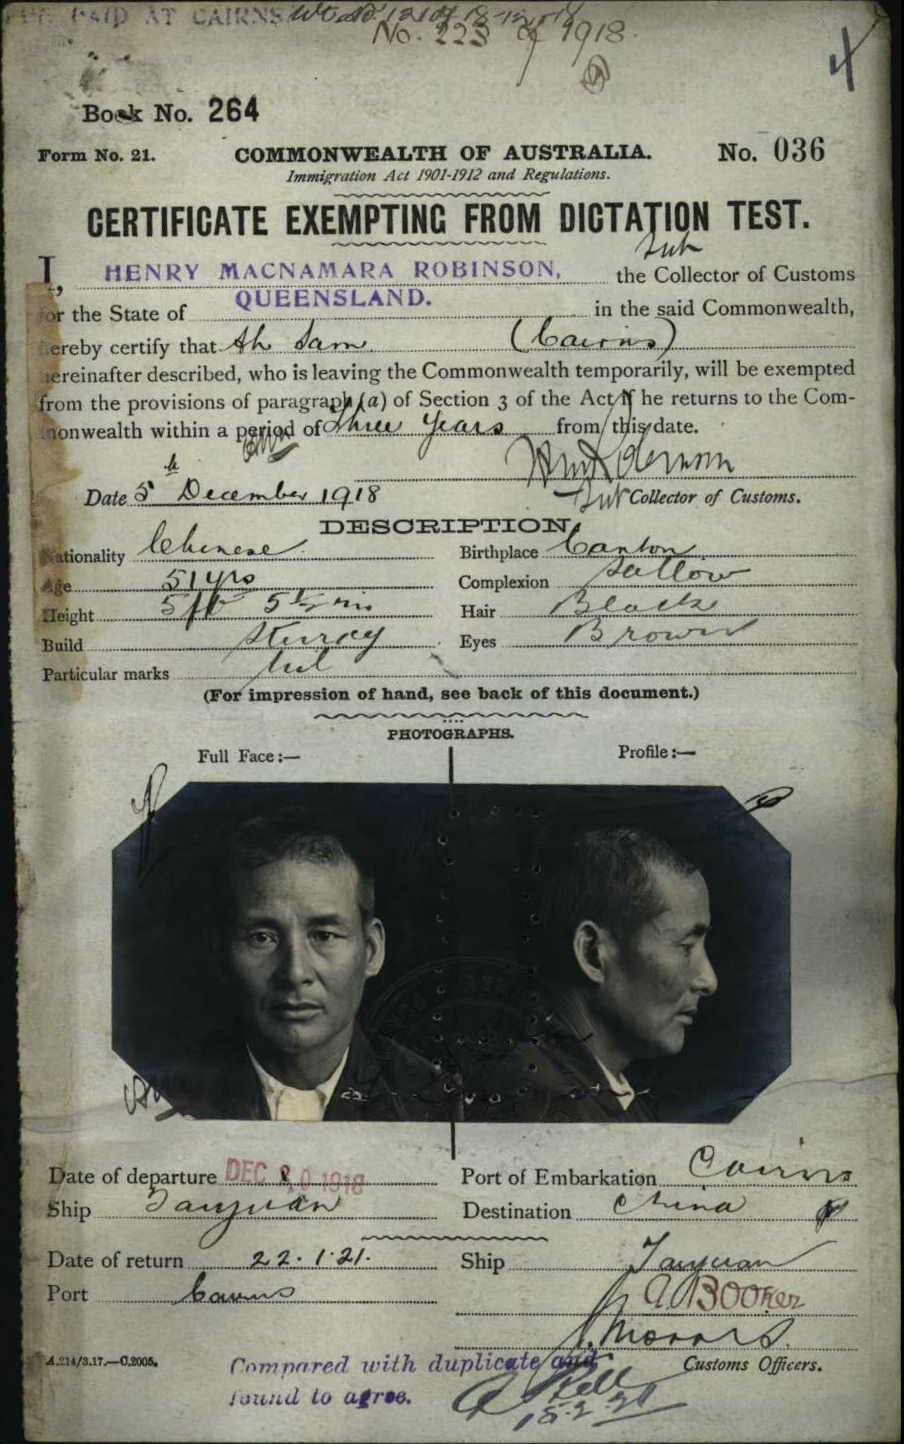 PAID AT CAIRNS
No. 223 of 1918.
Book No. 264
Form No. 21. COMMONWEALTH OF AUSTRALIA. No. 036
Immigration Act 1901-1912 and Regulations.
CERTIFICATE EXEMPTING FROM DICTATION TEST.
Sub
I, HENRY MACNAMARA ROBINSON, the Collector of Customs
for the State of QUEENSLAND. in the said Commonwealth,
hereby certify that Ah Sam (Cairns)
hereinafter described, who is leaving the Commonwealth temporarily, will be exempted
from the provisions of paragraph (a) of Section 3 of the Act if he returns to the Com-
monwealth within a period of Three Years from this date.
Date 5th December 1918 Sub Collector of Customs.
DESCRIPTION.
Nationality Chinese Birthplace Canton
Age 51 yrs Complexion Sallow
Height 5 ft 5½ in Hair Black
Build Sturdy Eyes Brown
Particular marks Nil
(For impression of hand, see back of this document.)
PHOTOGRAPHS.
Full Face:— Profile:—
Date of departure DEC 20 1918 Port of Embarkation Cairns
Ship Taiyuan Destination China
Date of return 22.1.21. Ship Taiyuan
Port Cairns A. Booker
Customs Officers.
A.214/3.17.—C.2005.
Compared with duplicate and
found to agree.
15.2.21